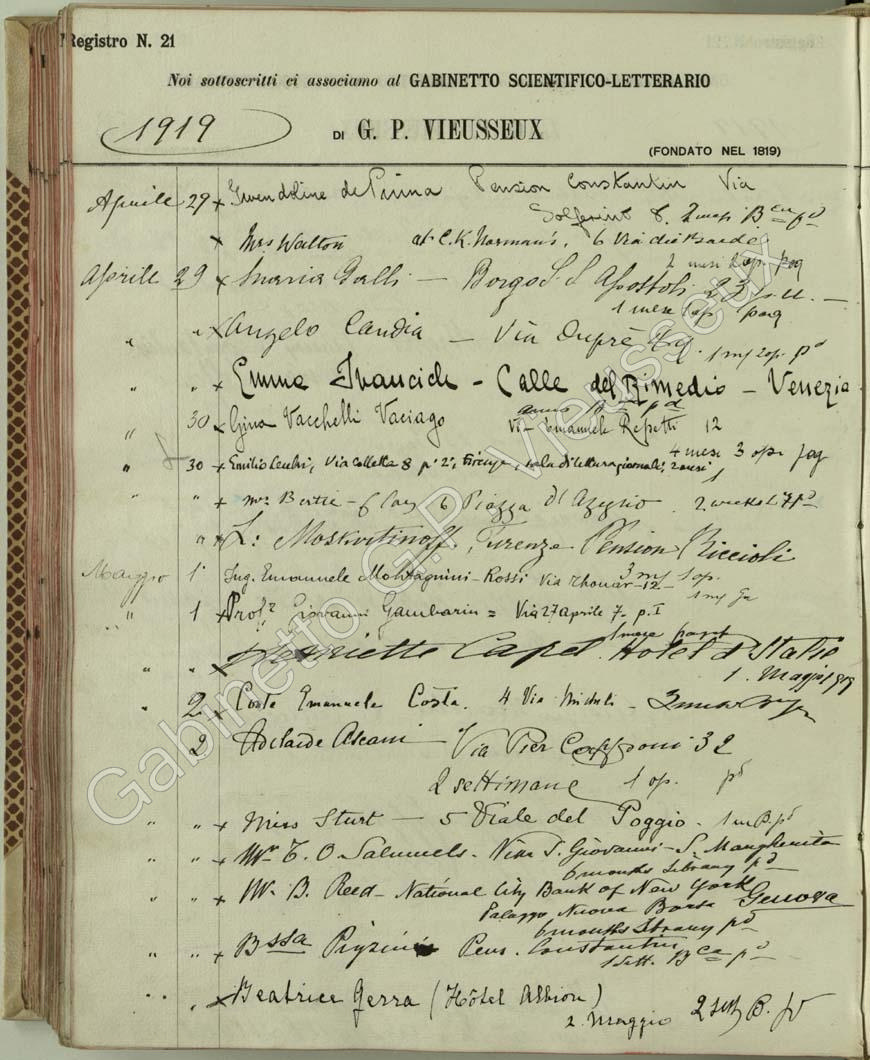 Registro N. 21
Noi sottoscritti ci associamo al GABINETTO SCIENTIFICO-LETTERARIO
1919
DI G. P. VIEUSSEUX
(FONDATO NEL 1819)
Aprile 29 x Gwendoline de Pinna Pension Constantin Via
Solferino 8. 2 mesi
x Mrs Walton at C. K. Norman's, 6 Via dei Bardi
2 mesi 2 op. pag
Aprile 29 x Maria Galli — Borgo S.S. Apostoli 23
1 mese 1 op. pag
" " x Angelo Candia — Via Duprè
1 m 2 op. pd
" " x Emma Ivancich - Calle del Rimedio - Venezia
anno
" 30 x Gina Vacchelli Vaciago Via Emanuele Repetti 12
4 mesi 3 op. pag
" 30 x Emilio Cecchi, Via Colletta 8 p° 2°, Firenze, sala di lettura giornali, 2 mesi
" " + Mrs Bertie - 6 Piazza d'Azeglio. 2 weeks
" x L: Moskvitinoff, Firenze Pension Riccioli
3 m 1 op.
Maggio 1 Ing. Emanuele Montagnini-Rossi Via Thouar-12-
" 1 x Prof. Giovanni Gambarin = Via 27 aprile 7- p. I
1 mese
" " x Henriette Capel. Hotel d'Italie
1. Maggio 1919
" 2 x Conte Emanuele Costa. 4 Via Micheli -
2 Adelaide Ascani — Via Pier Capponi 32
2 settimane 1 op. pd
" " x Miss Sturt — 5 Viale del Poggio. 1 m B. pd
" " x Mr T. O. Samuels - Villa S. Giovanni - S. Margherita
6 months Library pd
" " x Mr B. Reed - National City Bank of New York
Palazzo Nuova Borsa Genova
6 months Library pd
" " x Bssa Pens. Constantin
1 sett. Bca pd
" " x Beatrice Gerra (Hôtel Albion)
2 Maggio 2 sett B. pd
Gabinetto G.P. Vieusseux